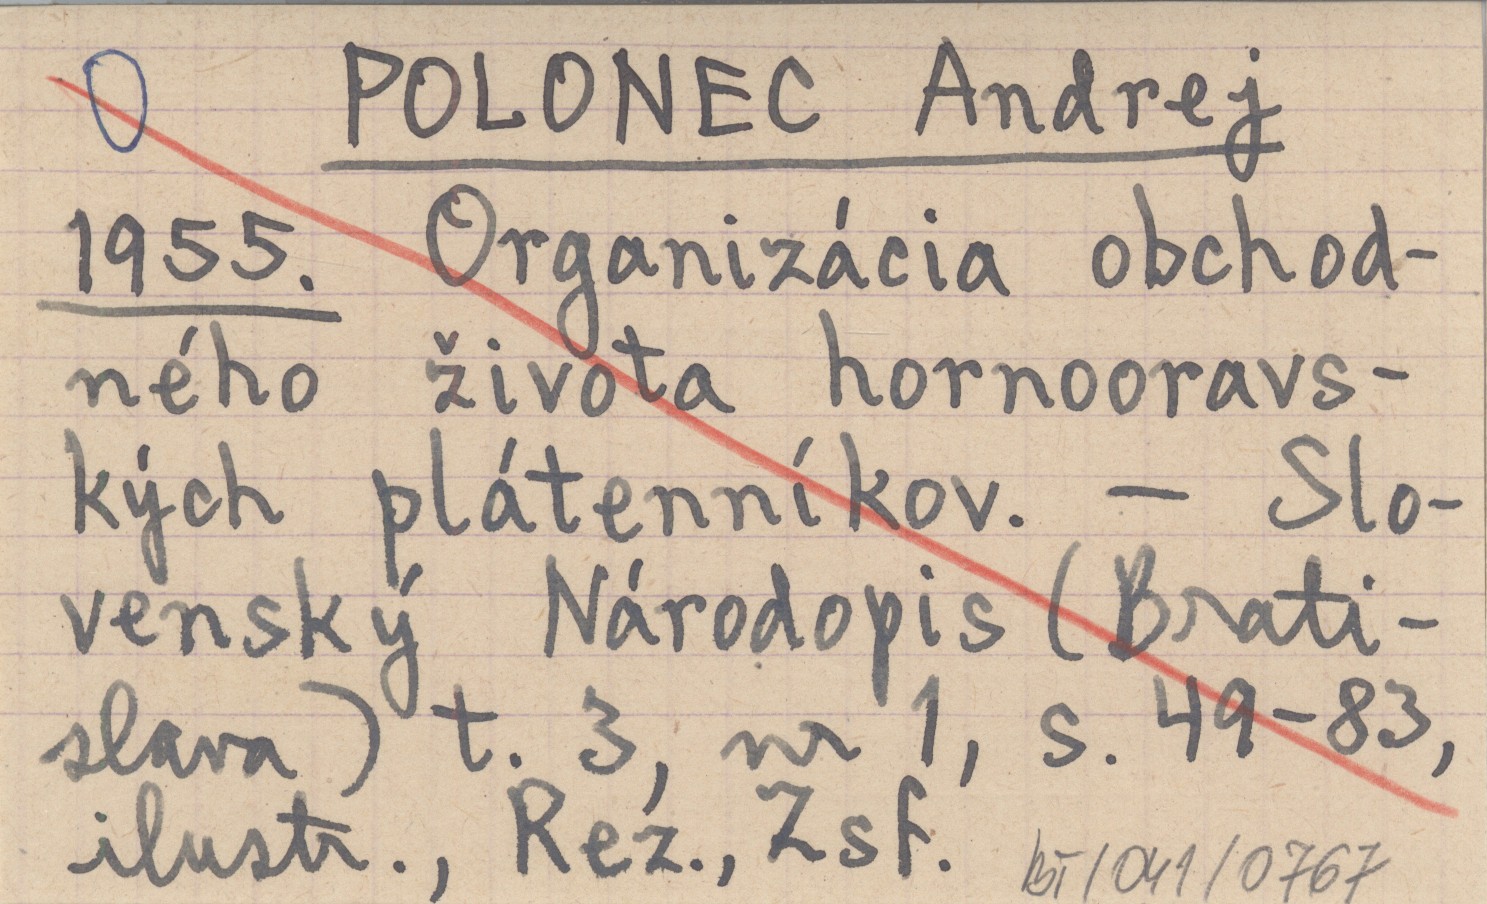 O POLONEC Andrej
1955. Organizácia obchod-
ného života hornooravs-
kých plátenníkov. — Slo-
venský Národopis (Brati-
slava) t. 3, nr 1, s. 49-83,
ilustr., Rez., Zsf.
/041/0767